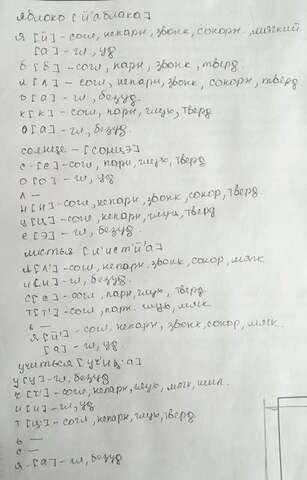 яблоко [й'аблака]
я [й'] - согл, непарн, звонк, сокорн. мягкий
[а] - гл, уд
б [б] - согл, парн, звонк, тверд.
л [л] - согл, непарн, звонк, сокорн, тверд
о [а] - гл, безуд.
к [к] - согл, парн, глух, тверд
о [а] - гл, безуд.
солнце - [сонцэ]
с - [с] - согл, парн, глух, тверд
о [о] - гл, уд
л -
н [н] - согл, непарн, звонк, сокор, тверд.
ц [ц] - согл, непарн, глух, тверд
е [э] - гл, безуд.
листья [л'ист'й'а]
л [л'] - согл, непарн, звонк, сокор, мягк
и [и] - гл, безуд.
с [с] - согл, парн, глух, тверд
т [т'] - согл, парн. глух, мягк
ь -
я [й'] - согл, непарн, звонк, сокор, мягк.
[а] - гл, уд.
учиться [уч'иц а]
у [у] - гл, безуд
ч [ч'] - согл, непарн, глух, мягк, шип.
и [и] - гл, уд
т [ц] - согл, непарн, глух, тверд.
ь —
с —
я - [а] - гл, безуд